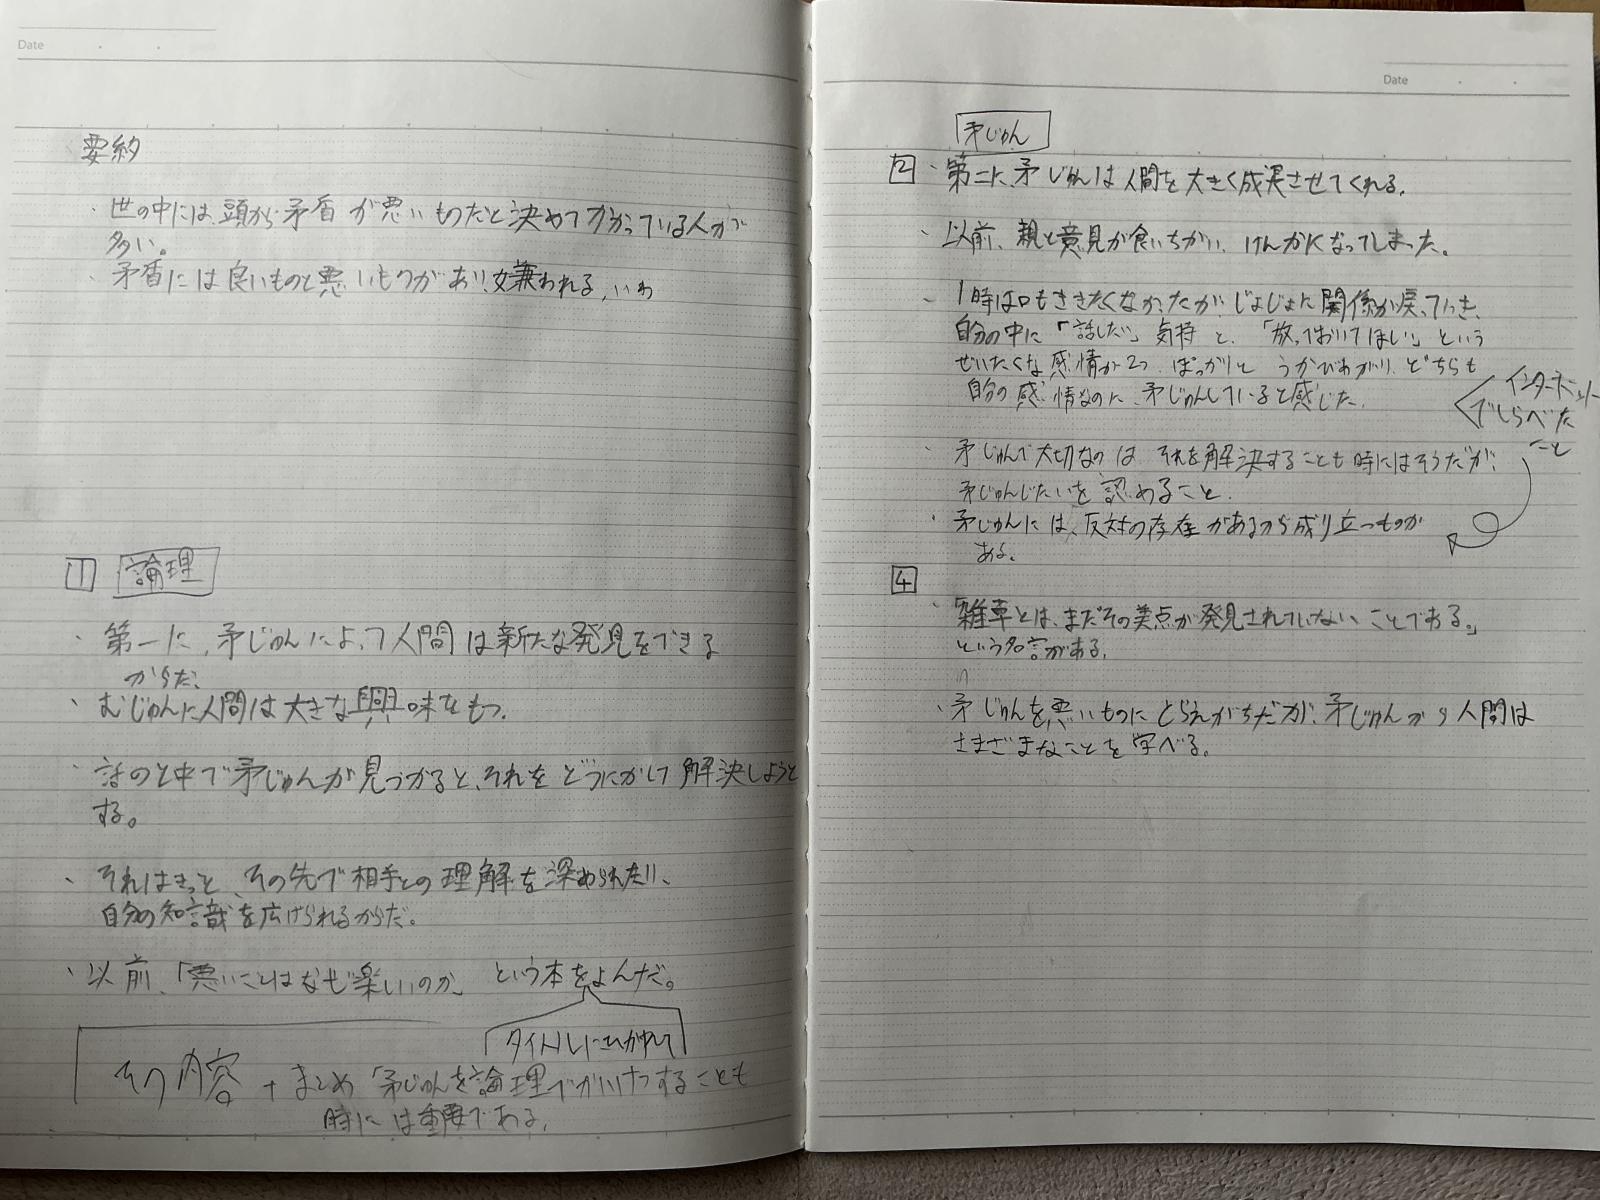 Date
要約
・世の中には、頭から矛盾が悪いものだと決めてかかっている人が
多い。
・矛盾には良いものと悪いものがあり、嫌われる、いわ
1 論理
・第一に、矛じゅんによって人間は新たな発見をできる
からだ、
・むじゅんに人間は大きな興味をもつ。
・話のと中で矛じゅんが見つかると、それをどうにかして解決しようと
する。
・それはきっと、その先で相手との理解を深められたり、
自分の知識を広げられるからだ。
・以前、「悪いことはなぜ楽しいのか」という本をよんだ。
タイトルにひかれて
その内容 + まとめ「矛じゅんを論理でかいけつすることも
時には重要である。
Date
矛じゅん
2 ・第二に、矛じゅんは人間を大きく成長させてくれる。
・以前、親と意見が食いちがい、けんかになってしまった。
・1時は口もききたくなかったが、じょじょに関係が戻っていき、
自分の中に「話したい」気持と、「放っておいてほしい」という
ぜいたくな感情が2つ、ぽっかりとうかびあがり、どちらも
自分の感情なのに、矛じゅんしていると感じた。
インターネット
でしらべた
こと
・矛じゅんで大切なのは それを解決することも時にはそうだが、
矛じゅんじたいを認めること。
・矛じゅんには、反対の存在があるから成り立つものが
ある。
4
・「雑草とは、まだその美点が発見されていないことである。」
という名言がある。
・矛じゅんを悪いものにとらえがちだが、矛じゅんから人間は
さまざまなことを学べる。